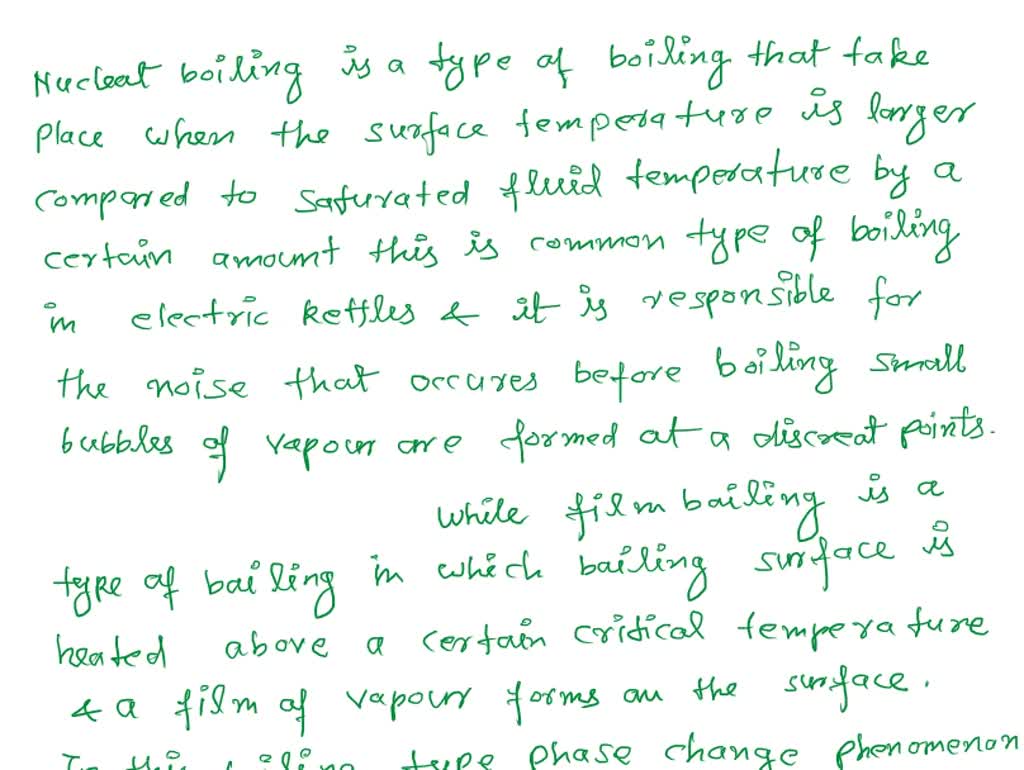 Nucleat boiling is a type of boiling that take
place when the surface temperature is larger
compared to saturated fluid temperature by a
certain amount this is common type of boiling
in electric kettles & it is responsible for
the noise that occures before boiling small
bubbles of vapour are formed at a discreat points.
while film bailing is a
type of bailing in which bailing surface is
heated above a certain critical temperature
& a film of vapour forms on the surface.
In this type phase change phenomenon